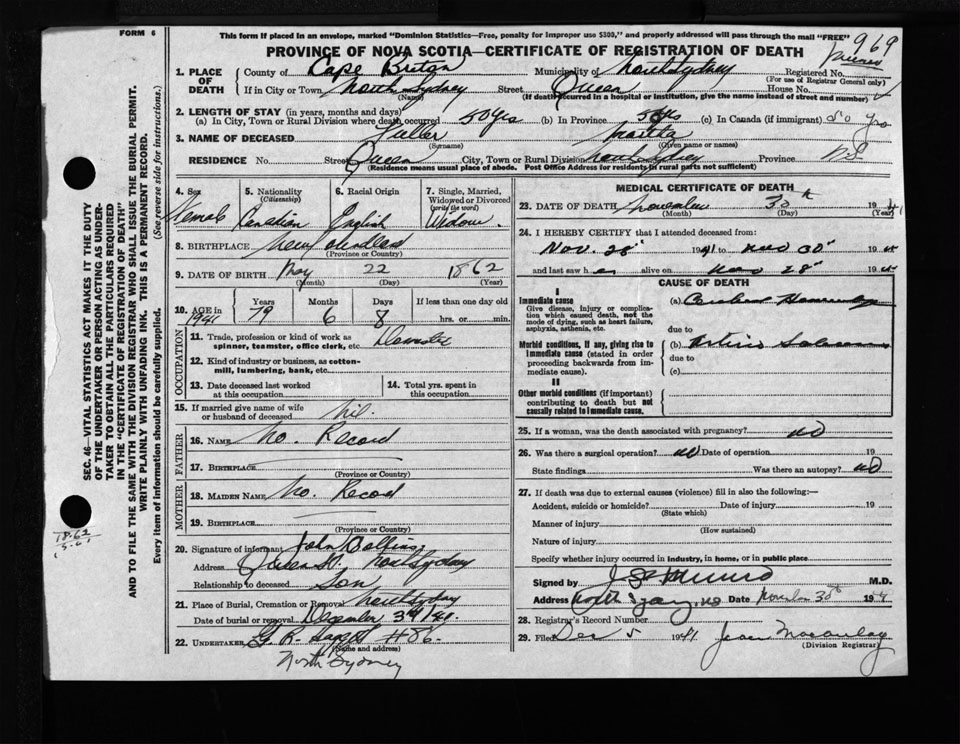 FORM 6
This form if placed in an envelope, marked "Dominion Statistics—Free, penalty for improper use $300," and properly addressed will pass through the mail "FREE"
PROVINCE OF NOVA SCOTIA—CERTIFICATE OF REGISTRATION OF DEATH
969
1. PLACE OF DEATH County of Cape Breton Municipality of North Sydney Registered No.
(For use of Registrar General only)
If in City or Town North Sydney Street Queen House No.
(Name) (If death occurred in a hospital or institution, give the name instead of street and number)
2. LENGTH OF STAY (in years, months and days)
(a) In City, Town or Rural Division where death occurred 50 yrs (b) In Province 50 yrs (c) In Canada (if immigrant) 50 yrs
3. NAME OF DECEASED Fuller Martha
(Surname) (Given name or names)
RESIDENCE No. Street Queen City, Town or Rural Division North Sydney Province N.S
(Residence means usual place of abode. Post Office Address for residents in rural parts not sufficient)
4. Sex 5. Nationality (Citizenship) 6. Racial Origin 7. Single, Married, Widowed or Divorced (write the word)
Female Canadian English Widow
8. BIRTHPLACE Newfoundland
(Province or Country)
9. DATE OF BIRTH May 22 1862
(Month) (Day) (Year)
10. AGE in 1941 Years 79 Months 6 Days 8 If less than one day old hrs. or min.
OCCUPATION
11. Trade, profession or kind of work as spinner, teamster, office clerk, etc. Domestic
12. Kind of industry or business, as cotton-mill, lumbering, bank, etc.
13. Date deceased last worked at this occupation
14. Total yrs. spent in this occupation
15. If married give name of wife or husband of deceased nil.
FATHER
16. NAME No. Record
17. BIRTHPLACE
(Province or Country)
MOTHER
18. MAIDEN NAME No. Record
19. BIRTHPLACE
(Province or Country)
20. Signature of informant John
Address Queen St. North Sydney
Relationship to deceased Son
21. Place of Burial, Cremation or Removal North Sydney
Date of burial or removal December 3rd/41.
22. UNDERTAKER G. R. #86.
(Name and address)
North Sydney
MEDICAL CERTIFICATE OF DEATH
23. DATE OF DEATH November 30th 19
(Month) (Day) (Year)
24. I HEREBY CERTIFY that I attended deceased from:
Nov. 28th 1941 to Nov 30th 19
and last saw h er alive on Nov 28th 19
CAUSE OF DEATH
I
Immediate cause
Give disease, injury or complication which caused death, not the mode of dying, such as heart failure, asphyxia, asthenia, etc.
(a) Cerebral Hemorrhage
due to
Morbid conditions, if any, giving rise to immediate cause (stated in order proceeding backwards from immediate cause).
(b)
due to
(c)
II
Other morbid conditions (if important) contributing to death but not causally related to immediate cause.
25. If a woman, was the death associated with pregnancy? no
26. Was there a surgical operation? no Date of operation 19
State findings Was there an autopsy? no
27. If death was due to external causes (violence) fill in also the following:—
Accident, suicide or homicide? Date of injury 19
(State which)
Manner of injury
(How sustained)
Nature of injury
Specify whether injury occurred in industry, in home, or in public place
Signed by Munro M.D.
Address North Sydney, NS Date November 30th 19
28. Registrar's Record Number
29. Filed Dec 5 1941 Jean Macaulay
(Division Registrar)
SEC. 46—VITAL STATISTICS ACT MAKES IT THE DUTY
OF THE UNDERTAKER OR PERSON ACTING AS UNDERTAKER TO OBTAIN ALL THE PARTICULARS REQUIRED
IN THE "CERTIFICATE OF REGISTRATION OF DEATH"
AND TO FILE THE SAME WITH THE DIVISION REGISTRAR WHO SHALL ISSUE THE BURIAL PERMIT.
WRITE PLAINLY WITH UNFADING INK. THIS IS A PERMANENT RECORD.
Every item of information should be carefully supplied. (See reverse side for instructions.)
1862